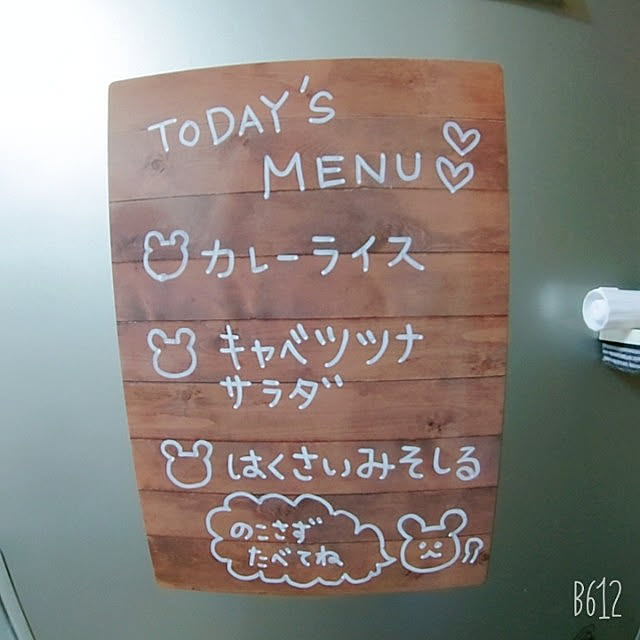 TODAY'S
MENU
カレーライス
キャベツツナ
サラダ
はくさいみそしる
のこさず
たべてね
B612